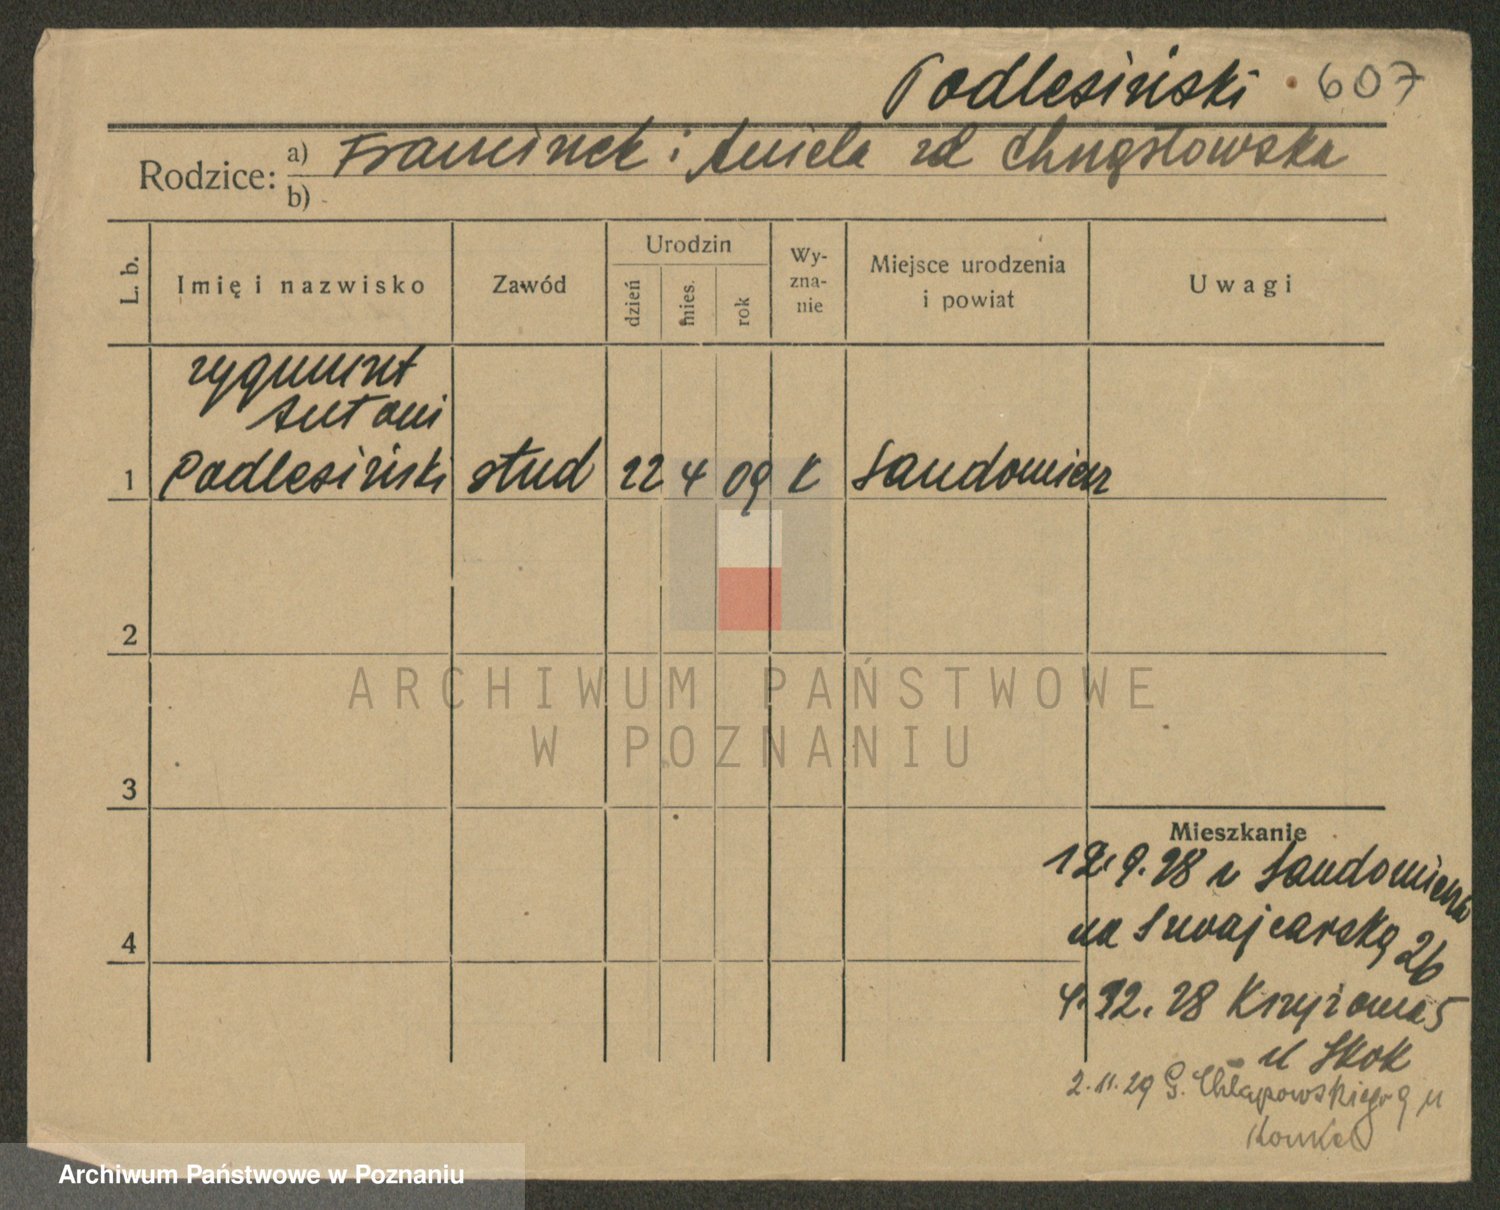 Podlesiński 607
Rodzice: a) Franciszek i Aniela zd
b)
L. b.
Imię i nazwisko
Zawód
Urodzin
dzień
mies.
rok
Wy-
zna-
nie
Miejsce urodzenia
i powiat
Uwagi
Zygmunt
Antoni
1 Podlesiński stud 22 4 09 K Sandomierz
2
3
4
Mieszkanie
12.9.28 z Sandomierza
na Szwajcarską 26
4.12.28 Krzyżowa 5
u Skok
2.11.29 G. Chłapowskiego 9 u
ARCHIWUM PAŃSTWOWE
W POZNANIU
Archiwum Państwowe w Poznaniu